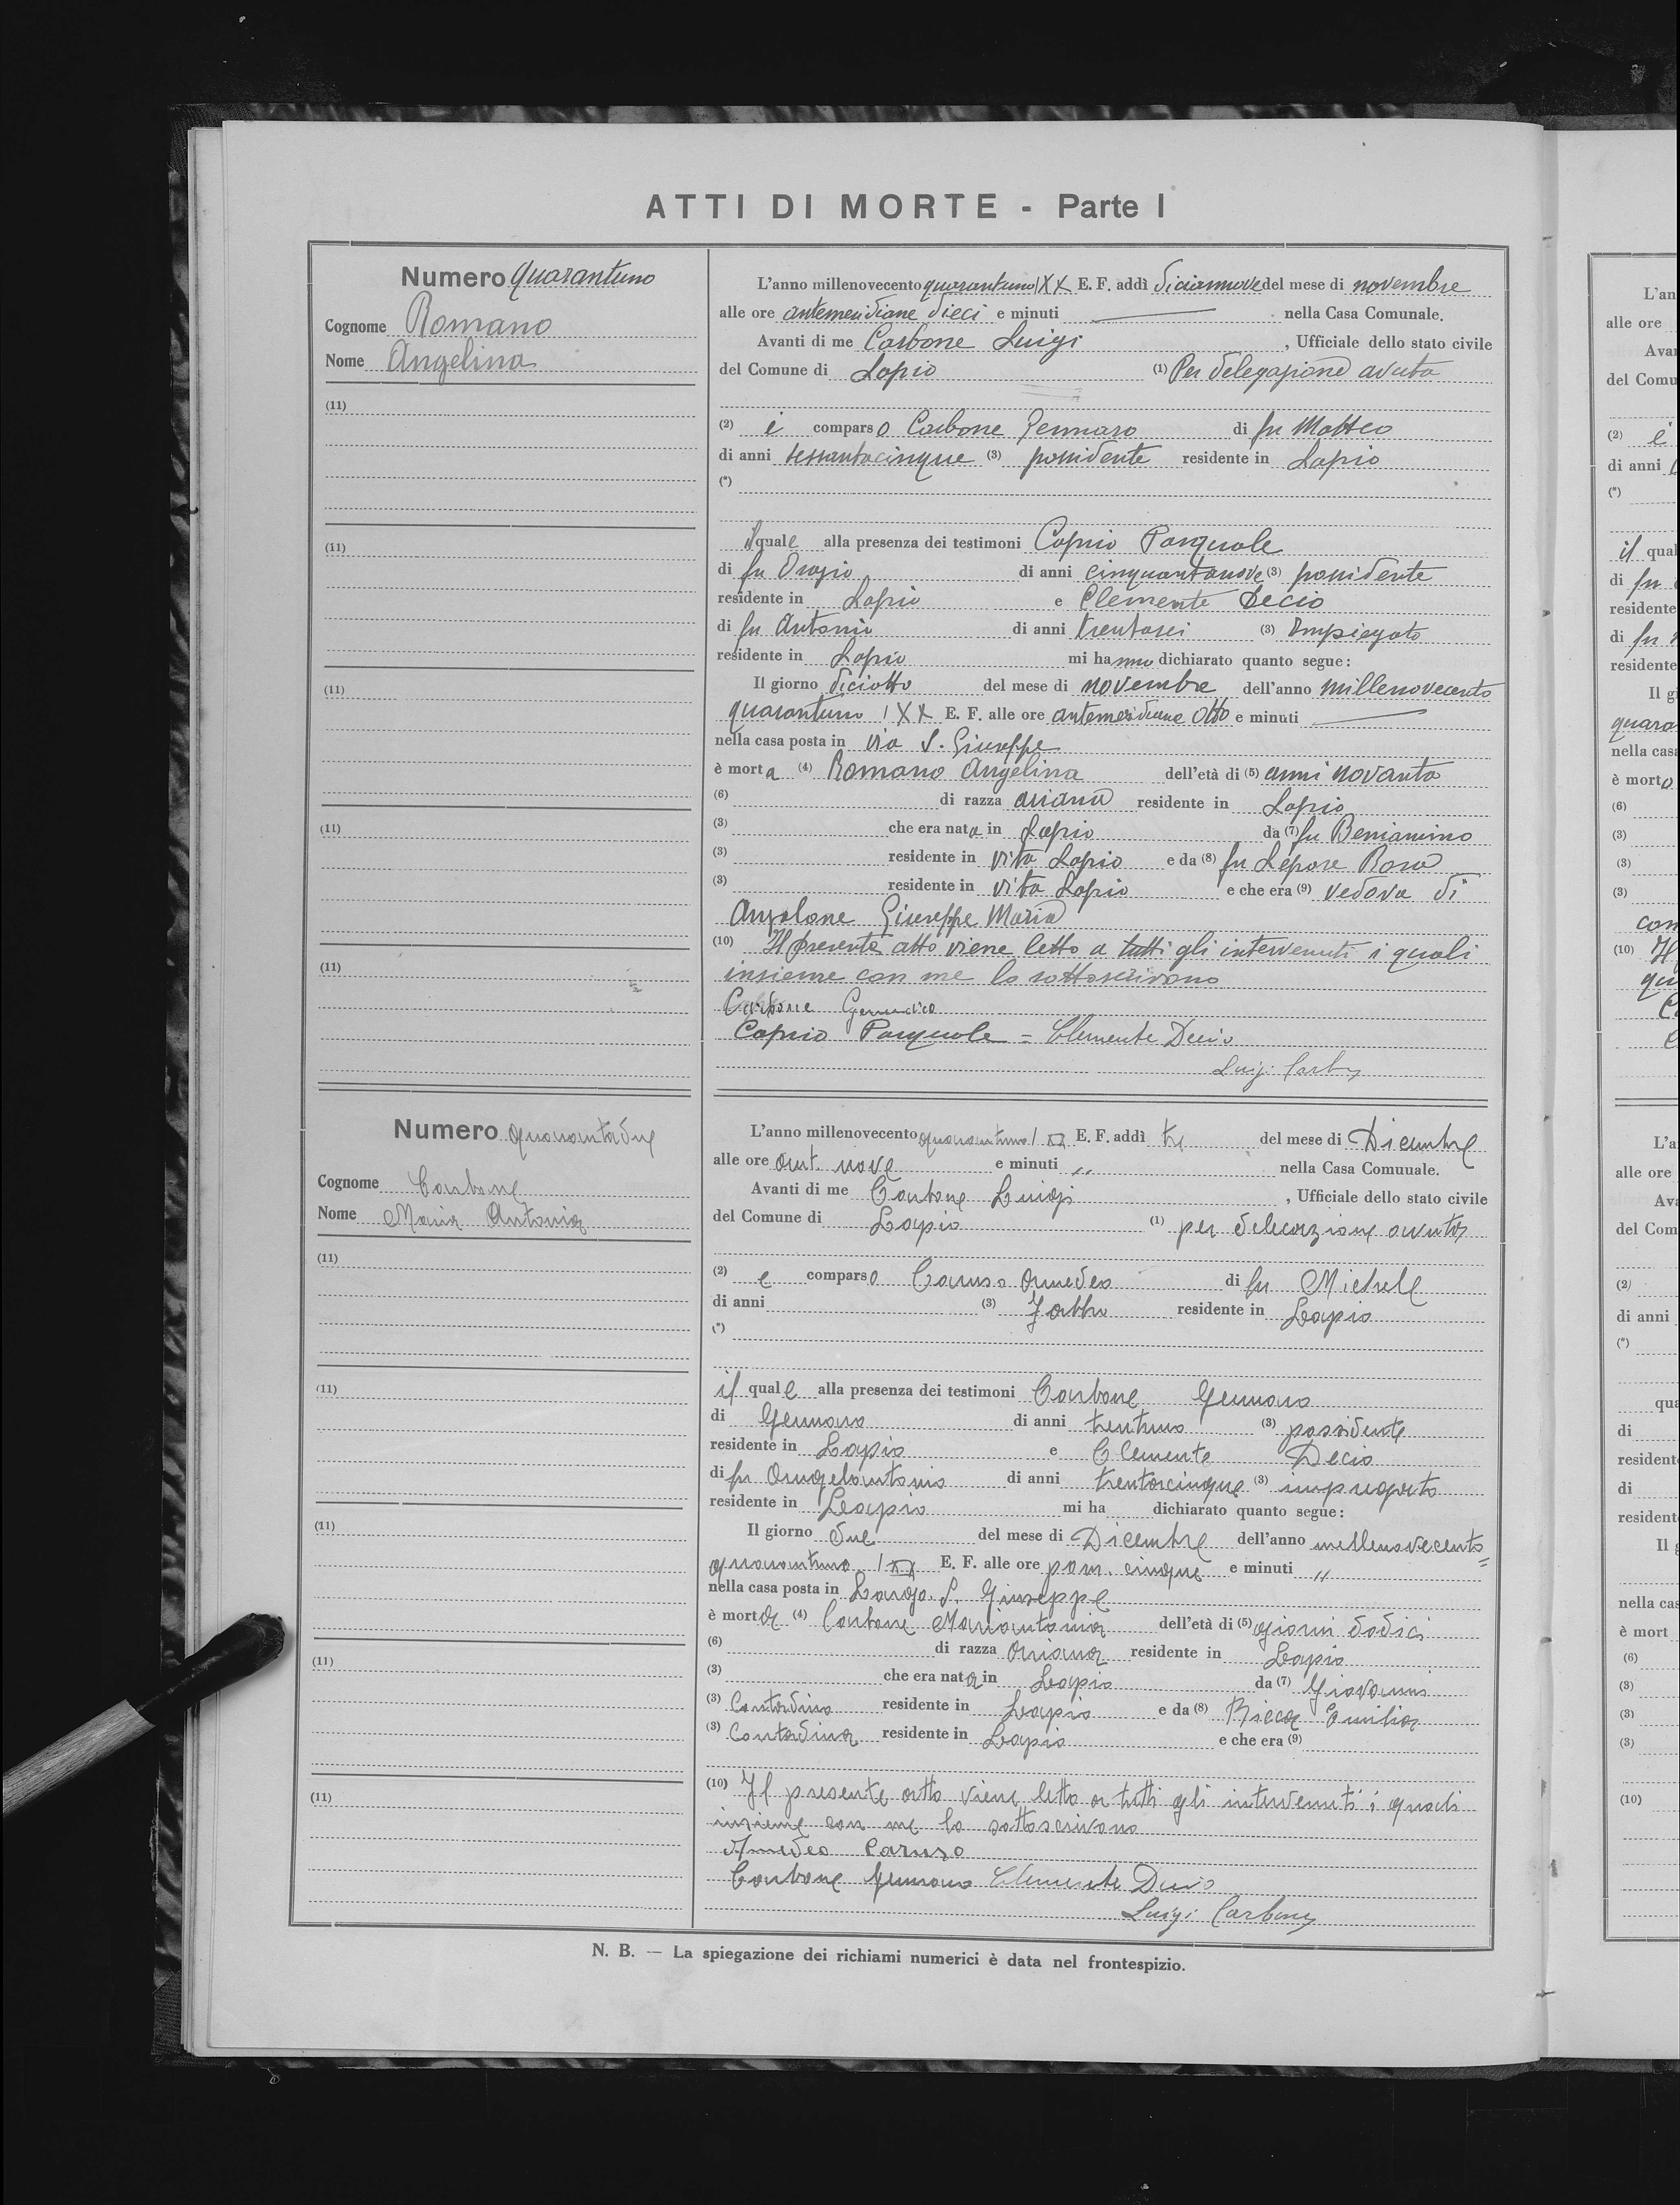 ATTI DI MORTE - Parte I
Numero quarantuno
Cognome Romano
Nome Angelina
(11)
(11)
(11)
(11)
(11)
L'anno millenovecento quarantuno / XX E. F. addì diciannove del mese di novembre
alle ore antemeridiane dieci e minuti — nella Casa Comunale.
Avanti di me Carbone Luigi , Ufficiale dello stato civile
del Comune di Lapio (1) Per delegazione avuta
(2) è comparso Carbone Gennaro di fu Matteo
di anni sessantacinque (3) possidente residente in Lapio
(*)
il quale alla presenza dei testimoni Caprio Pasquale
di fu Orazio di anni cinquantanove (3) possidente
residente in Lapio e Clemente Decio
di fu Antonio di anni trentasei (3) Impiegato
residente in Lapio mi hanno dichiarato quanto segue:
Il giorno diciotto del mese di novembre dell'anno millenovecento
quarantuno / XX E. F. alle ore antemeridiane otto e minuti —
nella casa posta in via S. Giuseppe
è morta (4) Romano Angelina dell'età di (5) anni novanta
(6) di razza ariana residente in Lapio
(3) che era nata in Lapio da (7) fu Beniamino
(3) residente in vita Lapio e da (8) fu Lepore Rosa
(3) residente in vita Lapio e che era (9) vedova di
Anzalone Giuseppe Maria
(10) Il presente atto viene letto a tutti gli intervenuti i quali
insieme con me lo sottoscrivono
Carbone Gennaro
Caprio Pasquale = Clemente Decio
Luigi Carbone
Numero quarantadue
Cognome Carbone
Nome Maria Antonia
(11)
(11)
(11)
(11)
(11)
L'anno millenovecento quarantuno / XX E. F. addì tre del mese di Dicembre
alle ore ant. nove e minuti ,, nella Casa Comuuale.
Avanti di me Carbone Luigi , Ufficiale dello stato civile
del Comune di Lapio (1) per delegazione avuta
(2) e comparso Caruso Amedeo di fu Michele
di anni (3) residente in Lapio
(*)
il quale alla presenza dei testimoni Carbone Gennaro
di Gennaro di anni trentuno (3) possidente
residente in Lapio e Clemente Decio
di fu Angelantonio di anni trentacinque (3) impiegato
residente in Lapio mi ha dichiarato quanto segue:
Il giorno due del mese di Dicembre dell'anno millenovecento=
quarantuno / XX E. F. alle ore pom. cinque e minuti ,,
nella casa posta in Largo S. Giuseppe
è morta (4) Carbone Mariantonia dell'età di (5) giorni dodici
(6) di razza ariana residente in Lapio
(3) che era nata in Lapio da (7) Giovanni
(3) Contadino residente in Lapio e da (8) Ricca Emilia
(3) Contadina residente in Lapio e che era (9)
(10) Il presente atto viene letto a tutti gli intervenuti i quali
insieme con me lo sottoscrivono
Amedeo Caruso
Carbone Gennaro Clemente Decio
Luigi Carbone
N. B. — La spiegazione dei richiami numerici è data nel frontespizio.